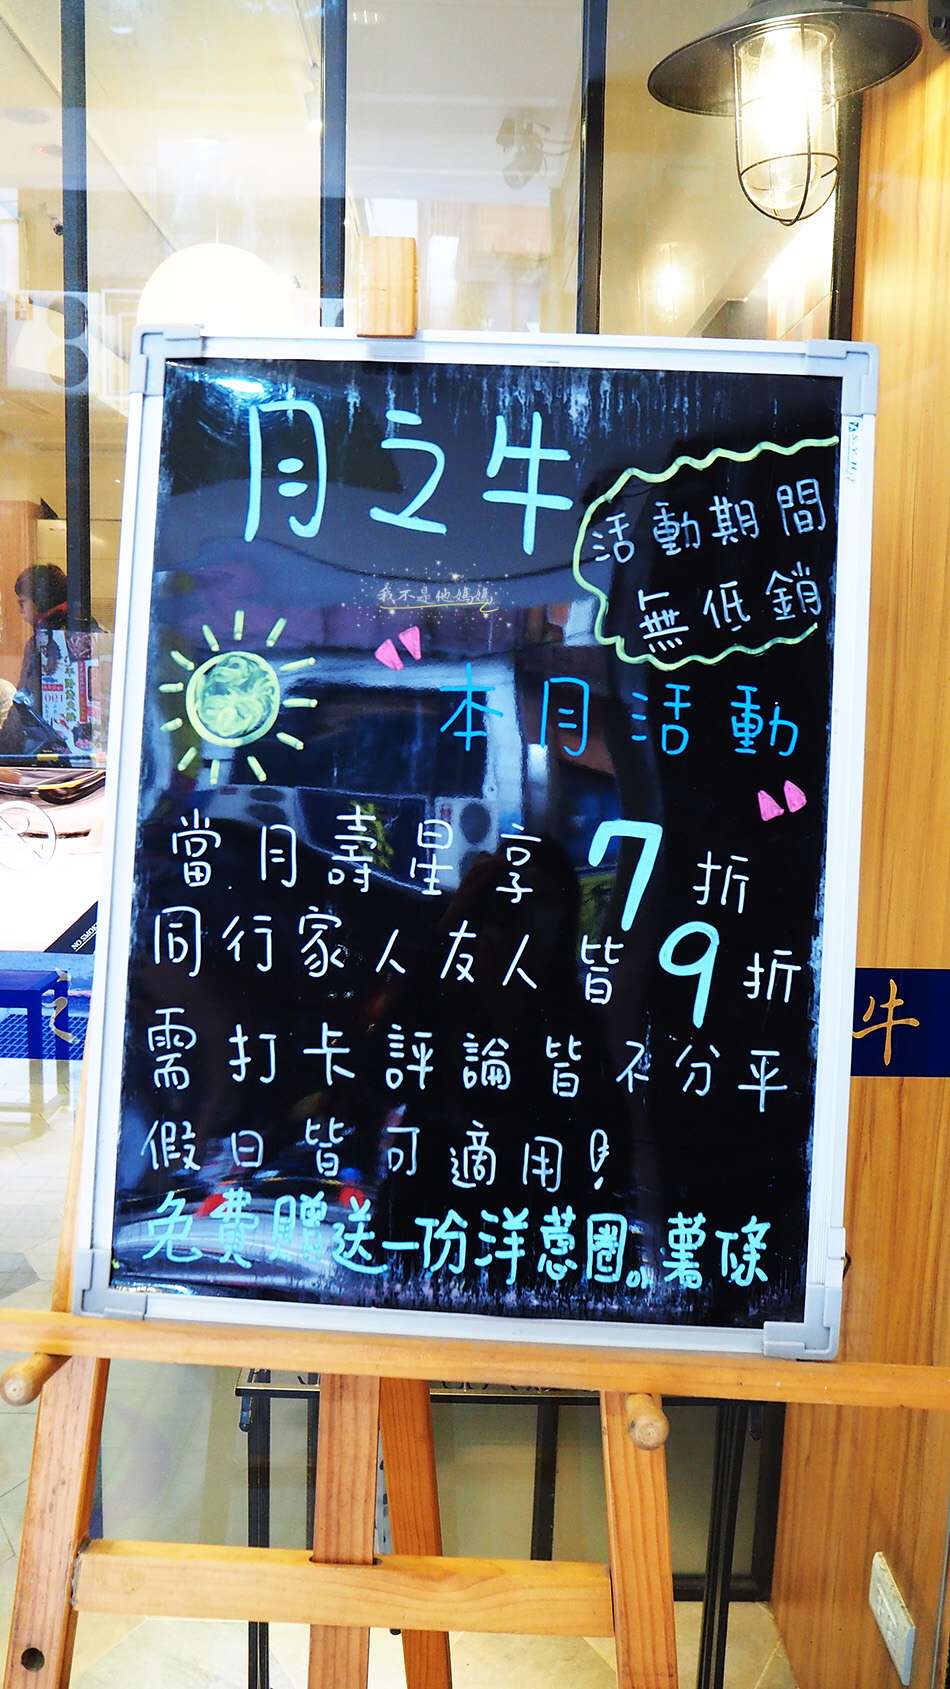 月之牛
活動期間
無低銷
我不是他媽媽
"本月活動"
當月壽星享7折
同行家人友人皆9折
需打卡評論皆不分平
假日皆可適用!
免費贈送一份洋蔥圈。薯條
牛
NO SMOK